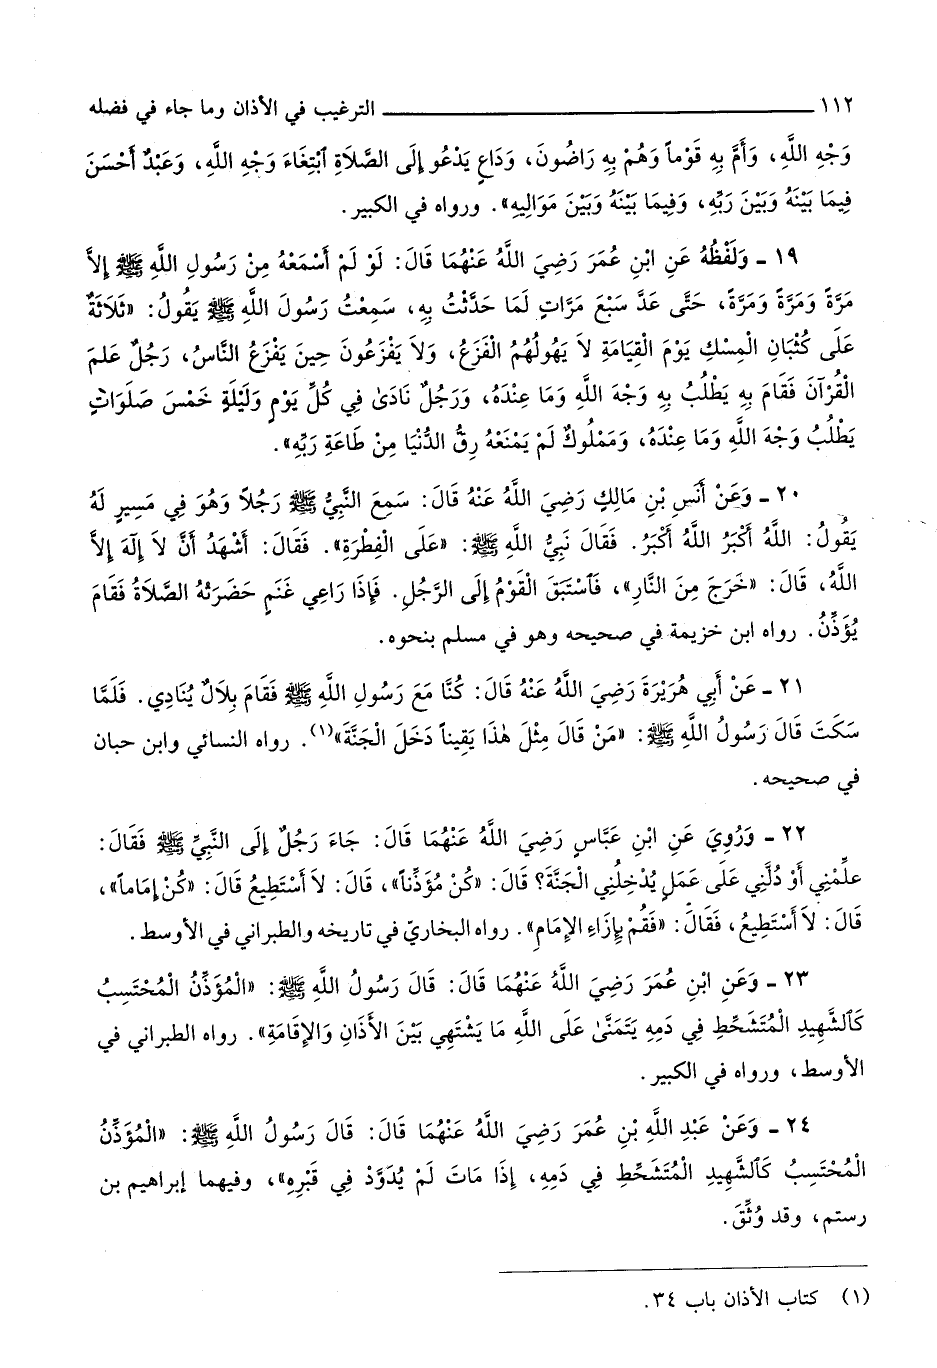 ١١٢ ــــــــــــــــــــــــــــــــــــ الترغيب في الأذان وما جاء في فضله
وَجْهِ اللَّهِ، وَأَمَّ بِهِ قَوْماً وَهُمْ بِهِ رَاضُونَ، وَدَاعٍ يَدْعُو إِلَى الصَّلَاةِ ٱبْتِغَاءَ وَجْهِ اللَّهِ، وَعَبْدٌ أَحْسَنَ
فِيمَا بَيْنَهُ وَبَيْنَ رَبِّهِ، وَفِيمَا بَيْنَهُ وَبَيْنَ مَوَالِيهِ». ورواه في الكبير.
١٩ ـ وَلَفْظُهُ عَنِ ابْنِ عُمَرَ رَضِيَ اللَّهُ عَنْهُمَا قَالَ: لَوْ لَمْ أَسْمَعْهُ مِنْ رَسُولِ اللَّهِ ﷺ إِلاَّ
مَرَّةً وَمَرَّةً وَمَرَّةً، حَتَّى عَدَّ سَبْعَ مَرَّاتٍ لَمَا حَدَّثْتُ بِهِ، سَمِعْتُ رَسُولَ اللَّهِ ﷺ يَقُولُ: «ثَلَاثَةٌ
عَلَى كُثْبَانِ الْمِسْكِ يَوْمَ الْقِيَامَةِ لَا يَهُولُهُمُ الْفَزَعُ، وَلَا يَفْزَعُونَ حِينَ يَفْزَعُ النَّاسُ، رَجُلٌ عَلِمَ
الْقُرْآنَ فَقَامَ بِهِ يَطْلُبُ بِهِ وَجْهَ اللَّهِ وَمَا عِنْدَهُ، وَرَجُلٌ نَادَىٰ فِي كُلِّ يَوْمٍ وَلَيْلَةٍ خَمْسَ صَلَوَاتٍ
يَطْلُبُ وَجْهَ اللَّهِ وَمَا عِنْدَهُ، وَمَمْلُوكٌ لَمْ يَمْنَعْهُ رِقُّ الدُّنْيَا مِنْ طَاعَةِ رَبِّهِ».
٢٠ ـ وَعَنْ أَنَسِ بْنِ مَالِكٍ رَضِيَ اللَّهُ عَنْهُ قَالَ: سَمِعَ النَّبِيُّ ﷺ رَجُلاً وَهُوَ فِي مَسِيرٍ لَهُ
يَقُولُ: اللَّهُ أَكْبَرُ اللَّهُ أَكْبَرُ. فَقَالَ نَبِيُّ اللَّهِ ﷺ: «عَلَى الْفِطْرَةِ». فَقَالَ: أَشْهَدُ أَنَّ لَا إِلَهَ إِلاَّ
اللَّهُ، قَالَ: «خَرَجَ مِنَ النَّارِ»، فَٱسْتَبَقَ الْقَوْمُ إِلَى الرَّجُلِ. فَإِذَا رَاعِي غَنَمٍ حَضَرَتْهُ الصَّلَاةُ فَقَامَ
يُؤَذِّنُ. رواه ابن خزيمة في صحيحه وهو في مسلم بنحوه.
٢١ ـ عَنْ أَبِي هُرَيْرَةَ رَضِيَ اللَّهُ عَنْهُ قَالَ: كُنَّا مَعَ رَسُولِ اللَّهِ ﷺ فَقَامَ بِلَالٌ يُنَادِي. فَلَمَّا
سَكَتَ قَالَ رَسُولُ اللَّهِ ﷺ: «مَنْ قَالَ مِثْلَ هٰذَا يَقِيناً دَخَلَ الْجَنَّةَ»(١). رواه النسائي وابن حبان
في صحيحه.
٢٢ ـ وَرُوِيَ عَنِ ابْنِ عَبَّاسٍ رَضِيَ اللَّهُ عَنْهُمَا قَالَ: جَاءَ رَجُلٌ إِلَى النَّبِيِّ ﷺ فَقَالَ:
عَلِّمْنِي أَوْ دُلَّنِي عَلَى عَمَلٍ يُدْخِلُنِي الْجَنَّةَ؟ قَالَ: «كُنْ مُؤَذِّناً»، قَالَ: لاَ أَسْتَطِيعُ قَالَ: «كُنْ إِمَاماً»،
قَالَ: لاَ أَسْتَطِيعُ، فَقَالَ: «فَقُمْ بِإِزَاءِ الإِمَامِ». رواه البخاريّ في تاريخه والطبراني في الأوسط.
٢٣ ـ وَعَنِ ابْنِ عُمَرَ رَضِيَ اللَّهُ عَنْهُمَا قَالَ: قَالَ رَسُولُ اللَّهِ ﷺ: «الْمُؤَذِّنُ الْمُحْتَسِبُ
كَٱلشَّهِيدِ الْمُتَشَحِّطِ فِي دَمِهِ يَتَمَنَّىٰ عَلَى اللَّهِ مَا يَشْتَهِي بَيْنَ الأَذَانِ وَالإِقَامَةِ». رواه الطبراني في
الأوسط، ورواه في الكبير.
٢٤ ـ وَعَنْ عَبْدِ اللَّهِ بْنِ عُمَرَ رَضِيَ اللَّهُ عَنْهُمَا قَالَ: قَالَ رَسُولُ اللَّهِ ﷺ: «الْمُؤَذِّنُ
الْمُحْتَسِبُ كَٱلشَّهِيدِ الْمُتَشَحِّطِ فِي دَمِهِ، إِذَا مَاتَ لَمْ يُدَوَّدْ فِي قَبْرِهِ»، وفيهما إبراهيم بن
رستم، وقد وُثِّقَ.
(١) كتاب الأذان باب ٣٤.